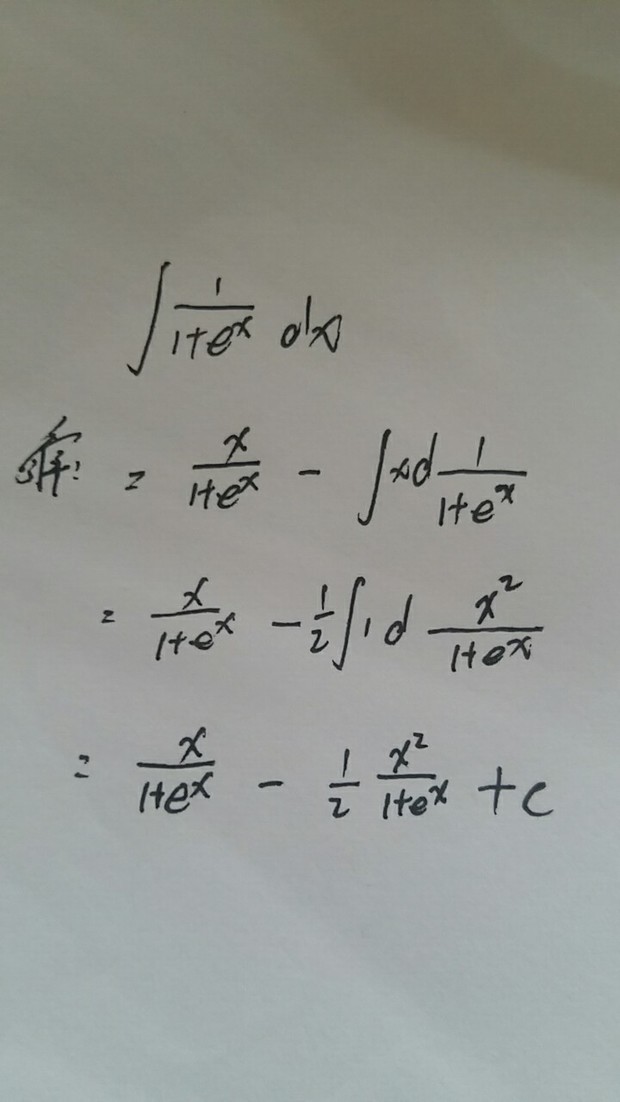 ∫ 1/(1+e^x) dx
解: = x/(1+e^x) - ∫xd 1/(1+e^x)
= x/(1+e^x) - 1/2 ∫1 d x^2/(1+e^x)
= x/(1+e^x) - 1/2 x^2/(1+e^x) + c